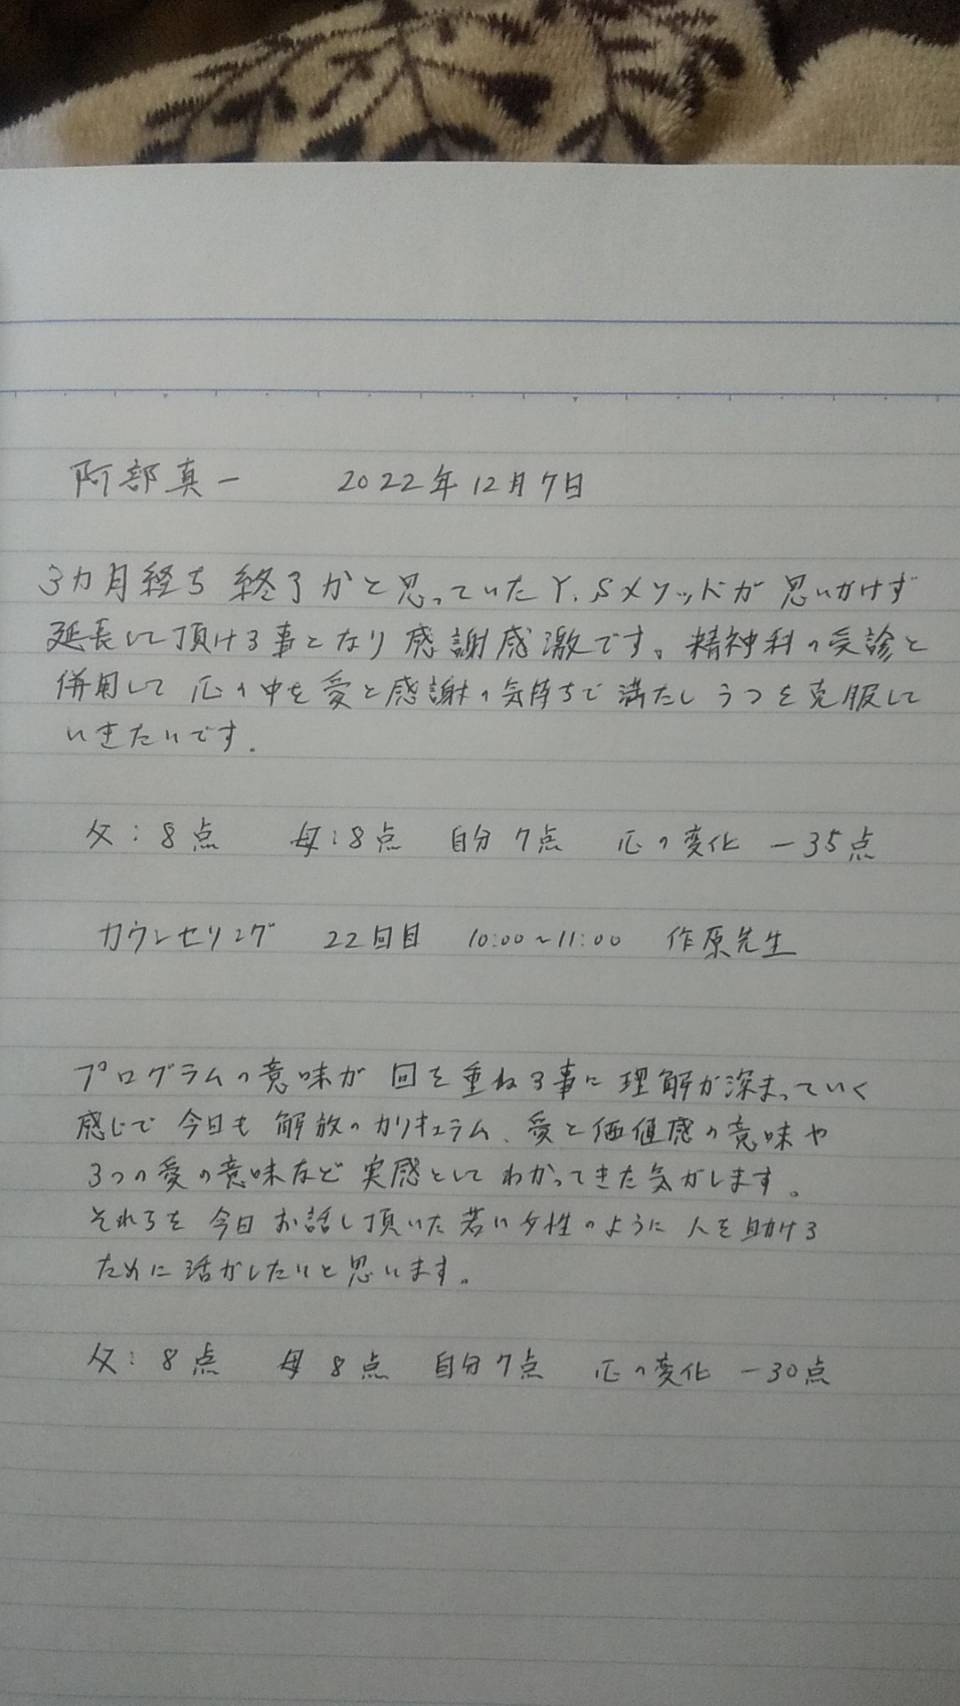 阿部真一 2022年12月7日
3カ月経ち終了かと思っていたY.Sメソッドが思いがけず
延長して頂ける事となり感謝感激です。精神科の受診と
併用して心の中を愛と感謝の気持ちで満たしうつを克服して
いきたいです.
父:8点 母:8点 自分7点 心の変化 -35点
カウンセリング 22回目 10:00~11:00 作原先生
プログラムの意味が回を重ねる事に理解が深まっていく
感じで今日も解放のカリキュラム、愛と価値感の意味や
3つの愛の意味など実感としてわかってきた気がします。
それらを今日お話し頂いた若い女性のように人を助ける
ために活かしたいと思います。
父:8点 母8点 自分7点 心の変化 -30点